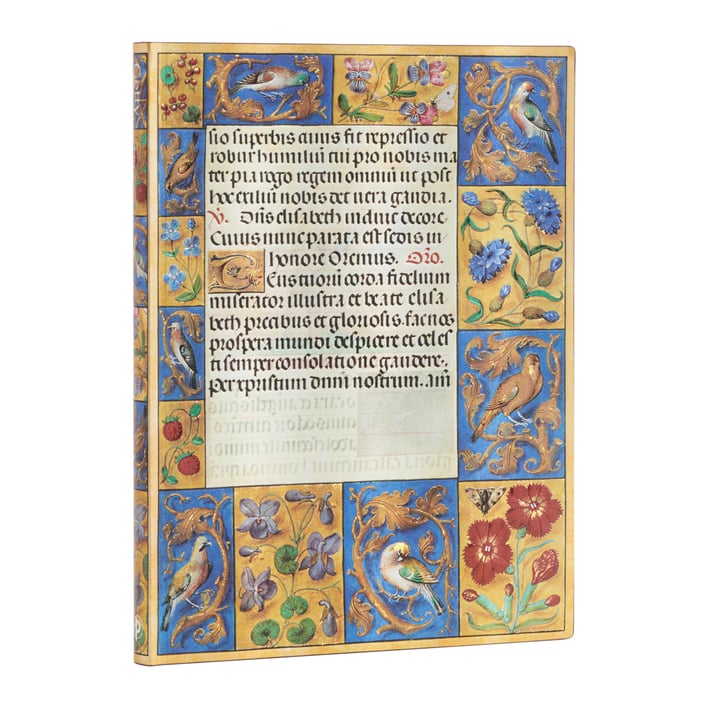 sio superbis cuius fit repressio et
robur humiliū tui pro nobis ma
ter pia rogo regem omniū ut post
hoc exiliū nobis det uera gaudia.
V. Dn̄s elisabeth induit decore.
Cuius nunc parata est sedis in
honore Oremus. Oro.
Deus tuorū corda fidelium
miserator illustra et beate elisa
beth precibus et gloriosis. fac nos
prospera mundi despicere et celes
ti semper consolatione gaudere.
Per xpristum dnm nostrum. am